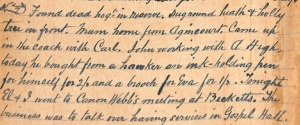 Found dead hedg: in reservoir. Dug round heath & holly
tree in front. Mum home from Agincourt. Came up
in the coach with Carl. John working with A High-
today he bought from a hawker an ink-holding pen
for himself for 2/- and a brooch for Eva for 1/-. Tonight
& I went to Canon Webb's meeting at Becketts. The
business was to talk over having services in Gospel Hall.